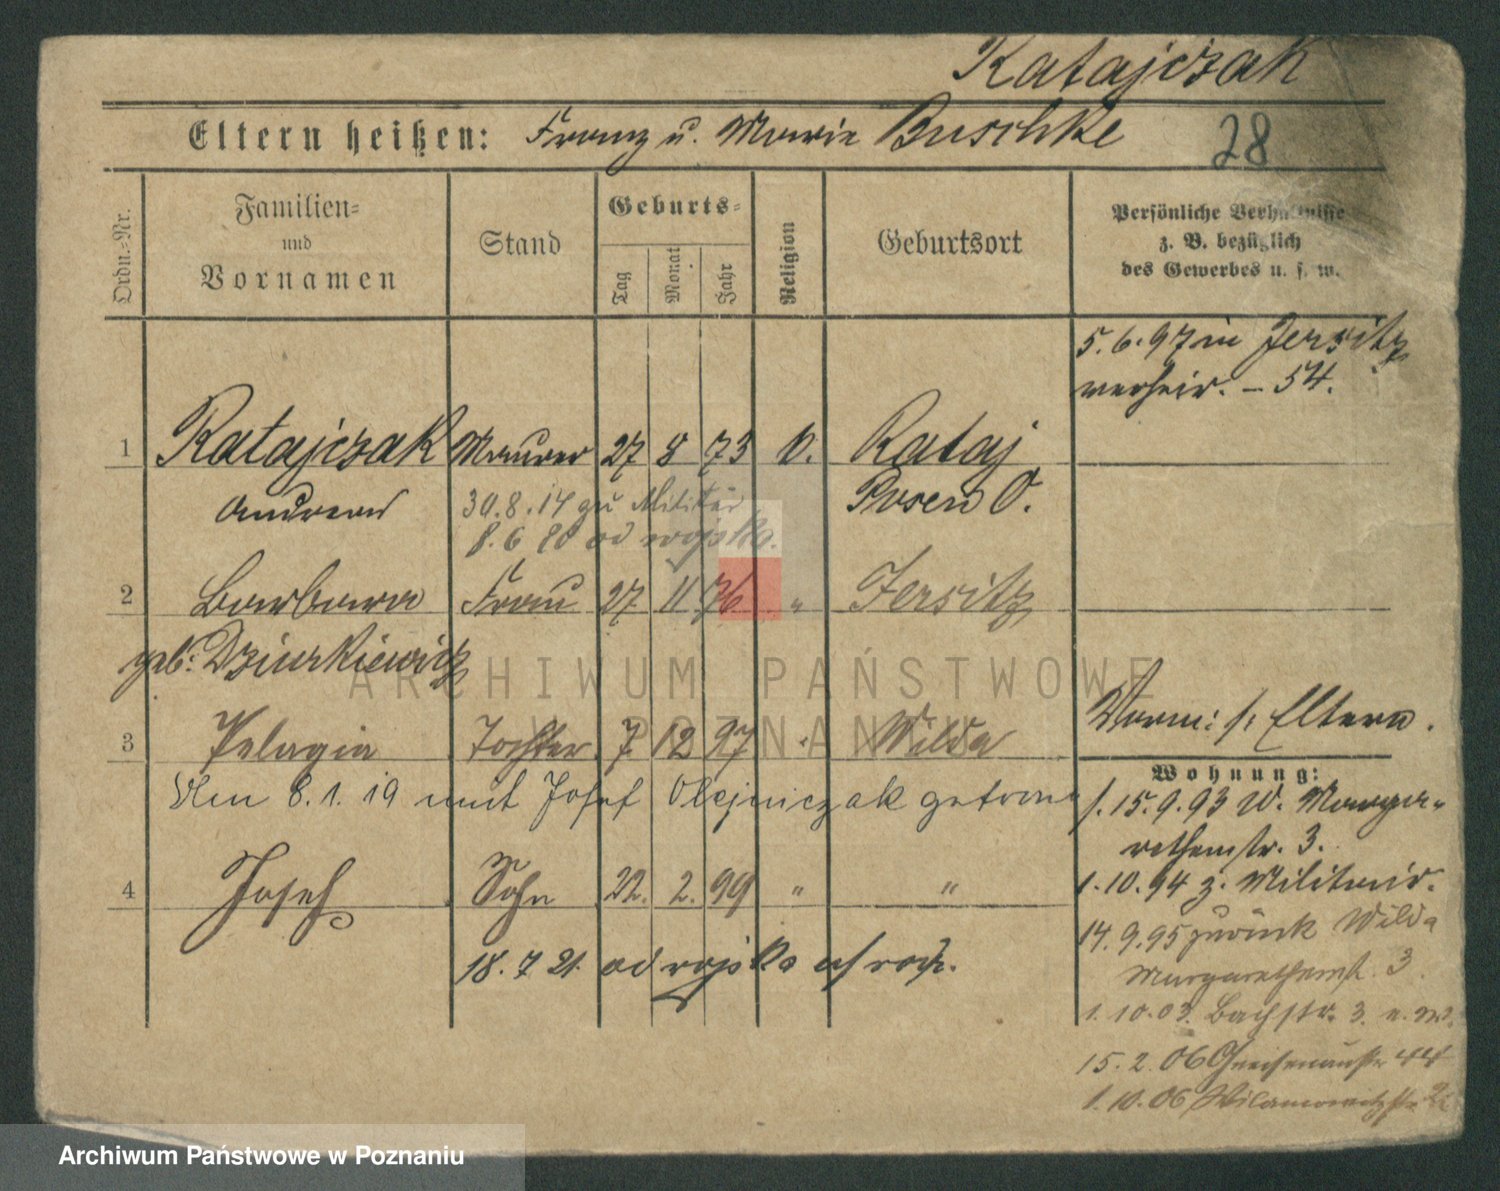 Ratajczak
Eltern heißen: Franz u. Marie Buschke 28
Ordn.-Nr.
Familien-
und
Vornamen
Stand
Geburts-
Tag
Monat
Jahr
Religion
Geburtsort
Persönliche Verhältnisse
z. B. bezüglich
des Gewerbes u. s. w.
5.6.97 in Jersitz
verheir. – 54.
1 Ratajczak Maurer 27 8 73 k. Rataj
Andreas 30.8.14 zu Militär Posen O.
8.6 20 od wojska.
2 Barbara Frau 27 11 76 " Jersitz
geb: Dziurkiewicz
ARCHIWUM PAŃSTWOWE
W POZNANIU
3 Pelagia Tochter 7 12 97 " Wilda
Vorm: s. Eltern.
Wohnung:
Am 8.1.19 mit Josef Olejniczak getraut
f. 15.9.93 W. Marga-
rethenstr. 3.
4 Josef Sohn 22. 2. 99 " "
1.10.94 z. Militair.
14.9.95 zurück Wilda
18.7 21. od wojska
Margarethenst. 3.
1.10.03. Bachstr. 3.
15.2.06 Gneisenaustr 44
1.10.06 Wilamowitzstr
Archiwum Państwowe w Poznaniu